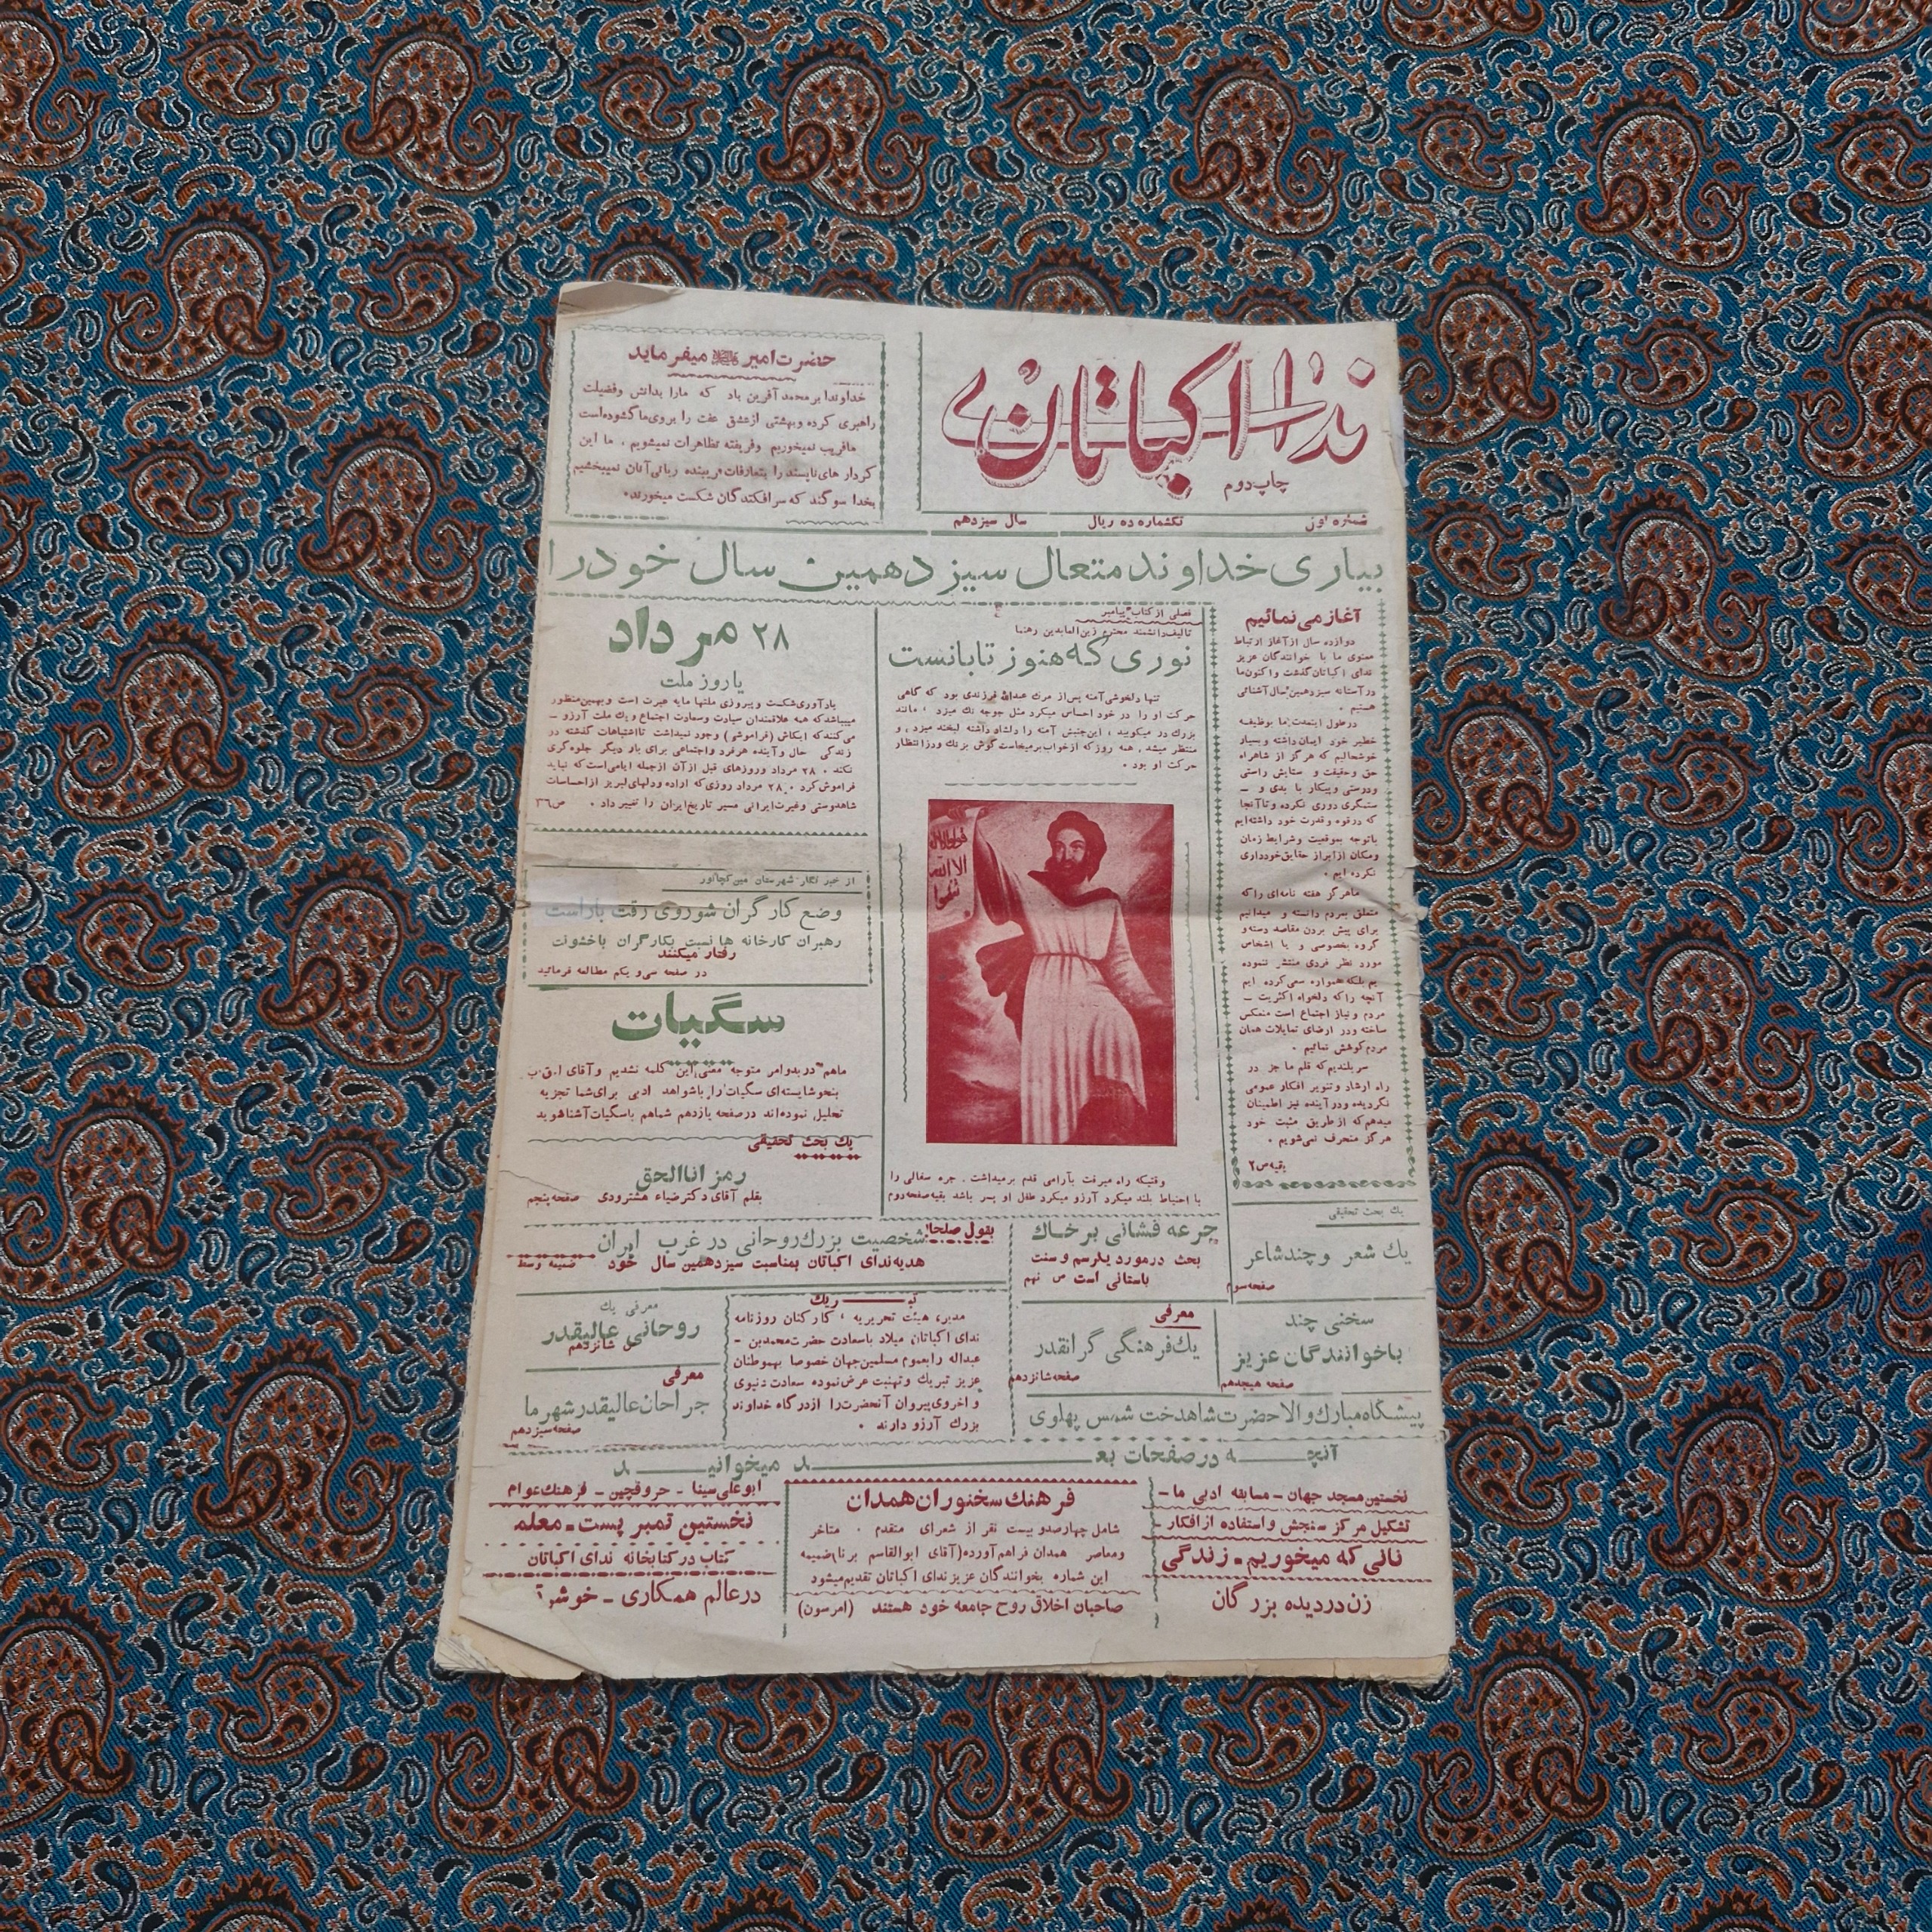 ندای اکباتان
چاپ دوم
شماره اول
تکشماره ده ریال
سال سیزدهم
حضرت امیر میفرماید
خداوندا بر محمد آفرین باد که مارا بدانش وفضیلت
راهبری کرده وبهشتی ازعشق عفت را بروی ما گشوده است
مافریب نمیخوریم وفریفته تظاهرات نمیشویم ، ما این
کردار های ناپسند را بتعارفات فریبنده زبانی آنان نمیبخشیم
بخدا سوگند که سرافکندگان شکست میخورند.
بیاری خداوند متعال سیزدهمین سال خود را
آغاز می نمائیم
دوازده سال از آغاز ارتباط
معنوی ما با خوانندگان عزیز
ندای اکباتان گذشت واکنون ما
در آستانه سیزدهمین سال آشنائی
هستیم .
درطول اینمدت ما بوظیفه
خطیر خود ایمان داشته وبسیار
خوشحالیم که هرگز از شاهراه
حق وحقیقت و ستایش راستی
ودرستی وپیکار با بدی و ـ
ستمگری دوری نکرده وتا آنجا
که درقوه وقدرت خود داشته ایم
باتوجه بموقعیت وشرایط زمان
ومکان ازابراز حقایق خودداری
نکرده ایم .
ماهرگز هفته نامه ای را که
متعلق بمردم دانسته و میدانیم
برای پیش بردن مقاصد دسته و
گروه بخصوصی و یا اشخاص
مورد نظر فردی منتشر ننموده
یم بلکه همواره سعی کرده ایم
آنچه را که دلخواه اکثریت ـ
مردم و نیاز اجتماع است منعکس
ساخته ودر ارضای تمایلات همان
مردم کوشش نمائیم .
سربلندیم که قلم ما جز در
راه ارشاد و تنویر افکار عمومی
نگردیده ودر آینده نیز اطمینان
میدهم که از طریق مثبت خود
هرگز منحرف نمی شویم .
بقیه ص ۲
فصلی از کتاب پیامبر
تالیف دانشمند محترم زین العابدین رهنما
نوری که هنوز تابانست
تنها دلخوشی آمنه پس از مرگ عبدالله فرزندی بود که گاهی
حرکت او را در خود احساس میکرد مثل جوجه تک میزد ، مانند
بزرگ در میکوبید ، این جنبش آمنه را دلشاد داشته لبخند میزد ، و
منتظر میشد ، همه روز که ازخواب برمیخاست گوش بزنگ ودرانتظار
حرکت او بود .
وقتیکه راه میرفت بآرامی قدم برمیداشت . جره سفالی را
با احتیاط بلند میکرد آرزو میکرد طفل او پسر باشد بقیه صفحه دوم
۲۸ مرداد
یا روز ملت
یادآوری شکست وپیروزی ملتها مایه عبرت است وبهمین منظور
میباشد که همه علاقمندان سیادت وسعادت اجتماع ویک ملت آرزو ـ
می کنند که ایکاش (فراموشی) وجود نمیداشت تا اشتباهات گذشته در
زندگی حال و آینده هرفرد واجتماعی برای بار دیگر جلوه گری
نکند . ۲۸ مرداد وروزهای قبل از آن از جمله ایامی است که نباید
فراموش کرد . ۲۸ مرداد روزی که اراده ودلهای لبریز ازاحساسات
شاهدوستی وغیرت ایرانی مسیر تاریخ ایران را تغییر داد . ص ۳۶
از خبر نگار شهرستان مین کچائور
وضع کارگران شوروی رقت باراست
رهبران کارخانه ها نسبت بکارگران باخشونت
رفتار میکنند
در صفحه سی و یکم مطالعه فرمائید
سگیات
ماهم در بدوامر متوجه معنی این کلمه نشدیم و آقای ا.ق.ب
بنحو شایسته ای سگیات را باشواهد ادبی برای شما تجزیه
تحلیل نموده اند درصفحه یازدهم شماهم باسگیات آشنا شوید
یک بحث تحقیقی
رمز اناالحق
بقلم آقای دکتر ضیاء هشترودی صفحه پنجم
بقول صلحا
شخصیت بزرگ روحانی در غرب ایران
هدیه ندای اکباتان بمناسبت سیزدهمین سال خود
ضمیمه وسط
جرعه فشانی برخاک
بحث درمورد یک رسم و سنت
باستانی است ص نهم
یک بحث تحقیقی
یک شعر و چند شاعر
صفحه سوم
سخنی چند
باخوانندگان عزیز
صفحه هیجدهم
معرفی
یک فرهنگی گرانقدر
صفحه شانزدهم
تبریک
مدیر، هیئت تحریریه ، کارکنان روزنامه
ندای اکباتان میلاد باسعادت حضرت محمدبن ـ
عبداله رابعموم مسلمین جهان خصوصا بهموطنان
عزیز تبریک و تهنیت عرض نموده سعادت دنیوی
و اخروی پیروان آنحضرت را ازدرگاه خداوند
بزرگ آرزو دارند .
معرفی یک
روحانی عالیقدر
ص شانزدهم
معرفی
جراحان عالیقدر شهر ما
صفحه سیزدهم
پیشگاه مبارک والاحضرت شاهدخت شمس پهلوی
آنچه در صفحات بعد میخوانید
نخستین مسجد جهان ـ مسابقه ادبی ما ـ
تشکیل مرکز سنجش و استفاده از افکار ـ
نانی که میخوریم ـ زندگی
زن در دیده بزرگان
فرهنگ سخنوران همدان
شامل چهارصدو بیست نفر از شعرای متقدم . متاخر
ومعاصر همدان فراهم آورده (آقای ابوالقاسم برنا) ضمیمه
این شماره بخوانندگان عزیز ندای اکباتان تقدیم میشود
صاحبان اخلاق روح جامعه خود هستند (امرسون)
ابوعلی سینا ـ حروفچین ـ فرهنگ عوام
نخستین تمبر پست ـ معلم
کتاب در کتابخانه ندای اکباتان
درعالم همکاری ـ